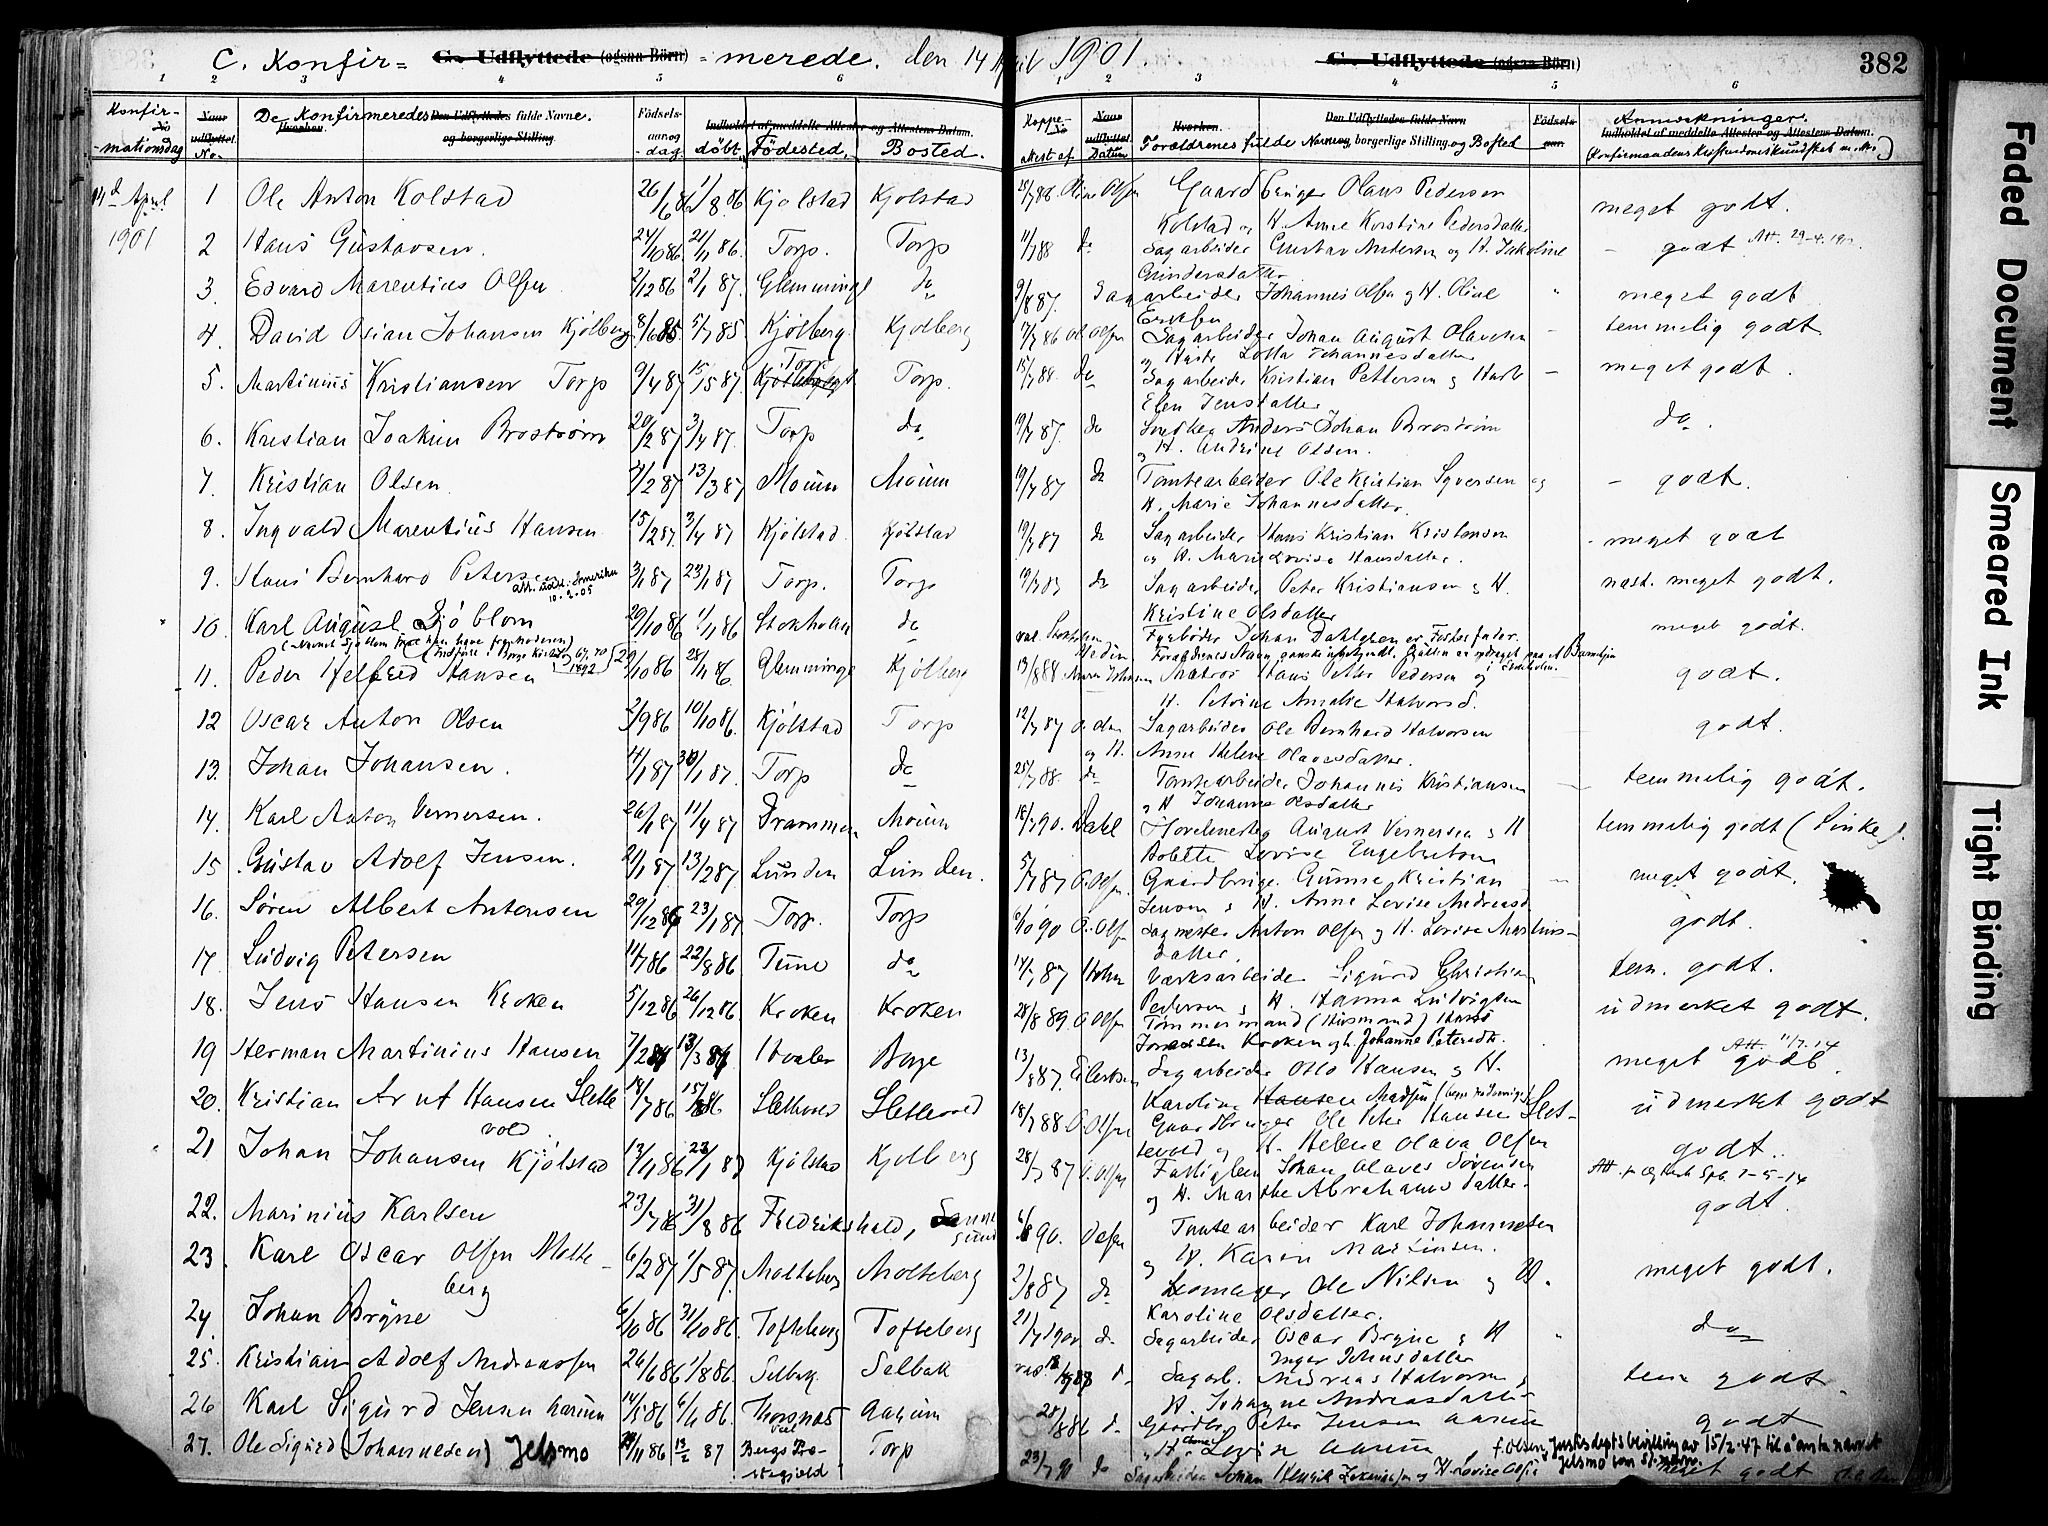 C. Konfir= G. Udflyttede (ogsaa Börn) = merede. den 14 April 1901. G. Udflyttede (ogsaa Börn) 382
1 2 3 4 5 6 1 2 3 4 5 6
Konfir-mationsdag No. De Konfirmeredes fulde Navne. Födsels-aar og -dag. döbt. Födested. Bosted.
Koppe-attest af. Forældrenes fulde Navne, borgerlige Stilling og Bosted Födsels-aar Anmerkninger. (Konfirmandens Kristendomskundskab m. M.)
14d April 1901
1 Ole Anton Kolstad 26/6 86 1/8 86 Kjolstad Kjolstad
Oline Olsen Gaardbruger Olaus Pedersen Kolstad og H. Anne Kirstine Pedersdatter meget godt.
2 Hans Gustavsen. 24/10 86 21/11 86. Torp. Torp
11/7 88 do Sagarbeider Gustav Andersen og H. Jakobine Gundersdatter - godt Att. 29-4-19
3. Edvard Marentius Olsen 2/12 86 2/1 87. Glemminge do
9/8 87. Sagarbeider Johannes Olsen og H. Oline Eriksen " meget godt
4. David Osian Johansen Kjölberg 8/6 85 5/7 85 Kjölberg. Kjolberg
7/7 86 Ol. Olsen Sagarbeider Johan August Olavesen og Hustr Lotta Johannesdatter - temmelig godt
5. Martinius Kristiansen Torp 9/4 87 15/5 87. Torp Torp.
15/7 88. do Sagarbeider Kristian Pettersen og Hustr Elen Jensdatter - meget godt.
6. Kristian Joakim Broström 20/2 87 3/4 87. Torp do
19/7 87. do Anders Johan Broström og H. Andrine Olsen. do.
7. Kristian Olsen 4/2 87 13/3 87 Moum Moum
19/7 87 do Tomtearbeider Ole Kristian Syversen og H. Marie Johannesdatter. - godt.
8. Ingvald Marentius Hansen 15/2 87. 3/4 87 Kjölstad. Kjölstad
19/7 87 do Sagarbeider Hans Kristian Kristensen og H. Marie Lovise Hansdatter. - meget godt
9. Hans Bernhard Petersen 3/1 87 23/1 87 Torp. Torp
Att. udst. Amerika 10.2.05
do Sagarbeider Peter Kristiansen og H. Kristine Olsdatter næst. meget godt.
10. Karl August Sjöblom 29/10 86 1/11 86 Stokholm do
Fyrböder Johan Dahlgren er Fosterfader. meget godt.
11. Peder Helfred Hansen 29/10 86 28/11 86. Glemminge Kjölberg
13/8 88 Maren Johansen Matros Hans Peter Pedersen og H. Petrine Amalie Halvorsd. godt.
12 Oscar Anton Olsen 2/9 86 10/10 86. Kjölstad Torp
12/7 87 O. Olsen Sagarbeider Ole Bernhard Halvorsen og H. Anne Helene Olavesdatter. godt.
13. Johan Johansen. 11/1 87 30/1 87. Torp do
25/7 88. do Tomtearbeider Johannes Kristiansen og H. Johanne Olsdatter - temmelig godt.
14. Karl Anton Vernersen. 26/1 87 11/4 87 Drammen Moum
18/7 90. Dahl Hövelmester August Vernersen og H Bolette Lovise Engebretsen temmelig godt (Sinke).
15 Gustav Adolf Jensen. 21/1 87. 13/2 87 Lunden Lunden.
5/7 87 O. Olsen Gaardbruger Gunne Kristian Jensen og H. Anne Lovise Andreasd - meget godt.
16. Sören Albert Antonsen 29/12 86 23/1 87 Torp. Torp
6/10 90 O. Olsen Sagmester Anton Olsen og H. Lovise Martinsdatter. godt.
17. Ludvig Petersen 11/7 86 22/8 86 Tune do
14/7 87 Holm Værksarbeider Sigurd Christian Pedersen og H. Hanna Ludvigsen tem. godt.
18. Jens Hansen Kroken 5/12 86 26/12 86. Kroken Kroken
28/8 89. O. Olsen Tömmermand (Husmand) Hans Kroken og h. Johanne Petersdtr. udmerket godt.
19 Herman Martinius Hansen 7/2 87 13/3 87 Hvaler Borge
13/8 87. Eilertsen Sagarbeider Otto Hansen og H. Karoline Hansen Madsen meget godt. Att. 11/7-14
20. Kristian Arnt Hansen Slettevold 18/7 86 15/8 86 Slettevold Slettevold
18/7 88 O. Olsen Gaardbruger Ole Peter Hansen Slettevold og H. Helene Olava Olsen udmerket godt
21 Johan Johansen Kjölstad 13/11 86 23/1 87 Kjölstad Kjolberg
28/7 87 O. Olsen Fattiglem Johan Olaves Sörensen og H. Marthe Abrahamsdatter. godt.
22. Marinius Karlsen 23/7 86 31/8 86 Fredrikshald, Sannesund
90. Olsen Tomtearbeider Karl Johannesen og H. Karen Martinsen. godt.
23. Karl Oscar Olsen Molteberg 6/2 87 1/5 87. Molteberg Molteberg
2/8 87 do Skomager Ole Nilsen og H. Karoline Olsdatter. meget godt.
24 Johan Bryne 6/10 86 31/10 86. Tofteberg Tofteberg
21/7 1900 do Sagarbeider Oscar Bryne og H Inger Johnsdatter " do
25. Kristian Adolf Andreassen 26/6 86 1/8 86. Selbak Selbak
d. Sagarb. Andreas Halvorsen og H. Johanne Andreasdatter tem godt.
26 Karl Sigurd Jensen Aarum 14/5 86 6/6 86. Thorsnæs Aarum
28/8 86 d. Gaardbr. Peter Jensen Aarum og H. Lovise Aarum godt
27. Ole Sigurd (Johannesen) Jelsmo /11 86 13/2 87 Torp
23/7 90 do Sagarbeider Johan Henrik og H. Lovise Sofie meget godt
f. Olsen, Justisdepts bevilling av 15/2-47 til å anta navnet Jelsmo som sl. navn.
Faded Document
Smeared Ink
Tight Binding